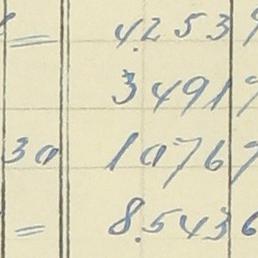 = 4.253
34917
30 10767
= 8.5436